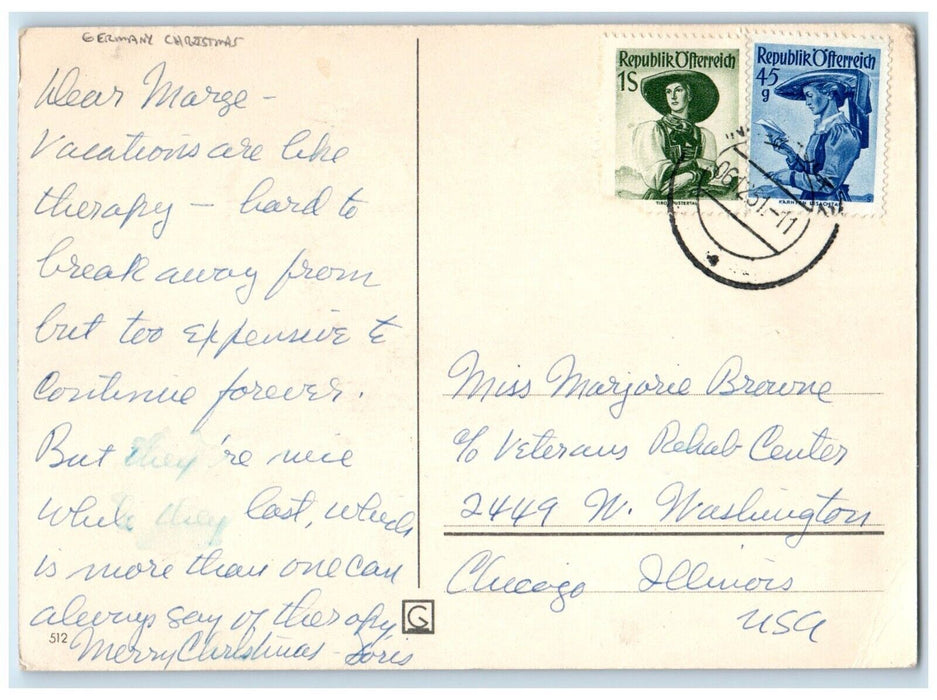 GERMANY CHRISTMAS
Dear Marge -
Vacations are like
therapy - hard to
break away from
but too expensive to
continue forever.
But they're nice
while they last, which
is more than one can
always say of therapy
Merry Christmas - Doris
512
G
Republik Österreich
1S
Republik Österreich
45
g
KÄRNTEN LESACHTAL
Miss Marjorie Browne
c/o Veterans Rehab Center
2449 W. Washington
Chicago Illinois
USA